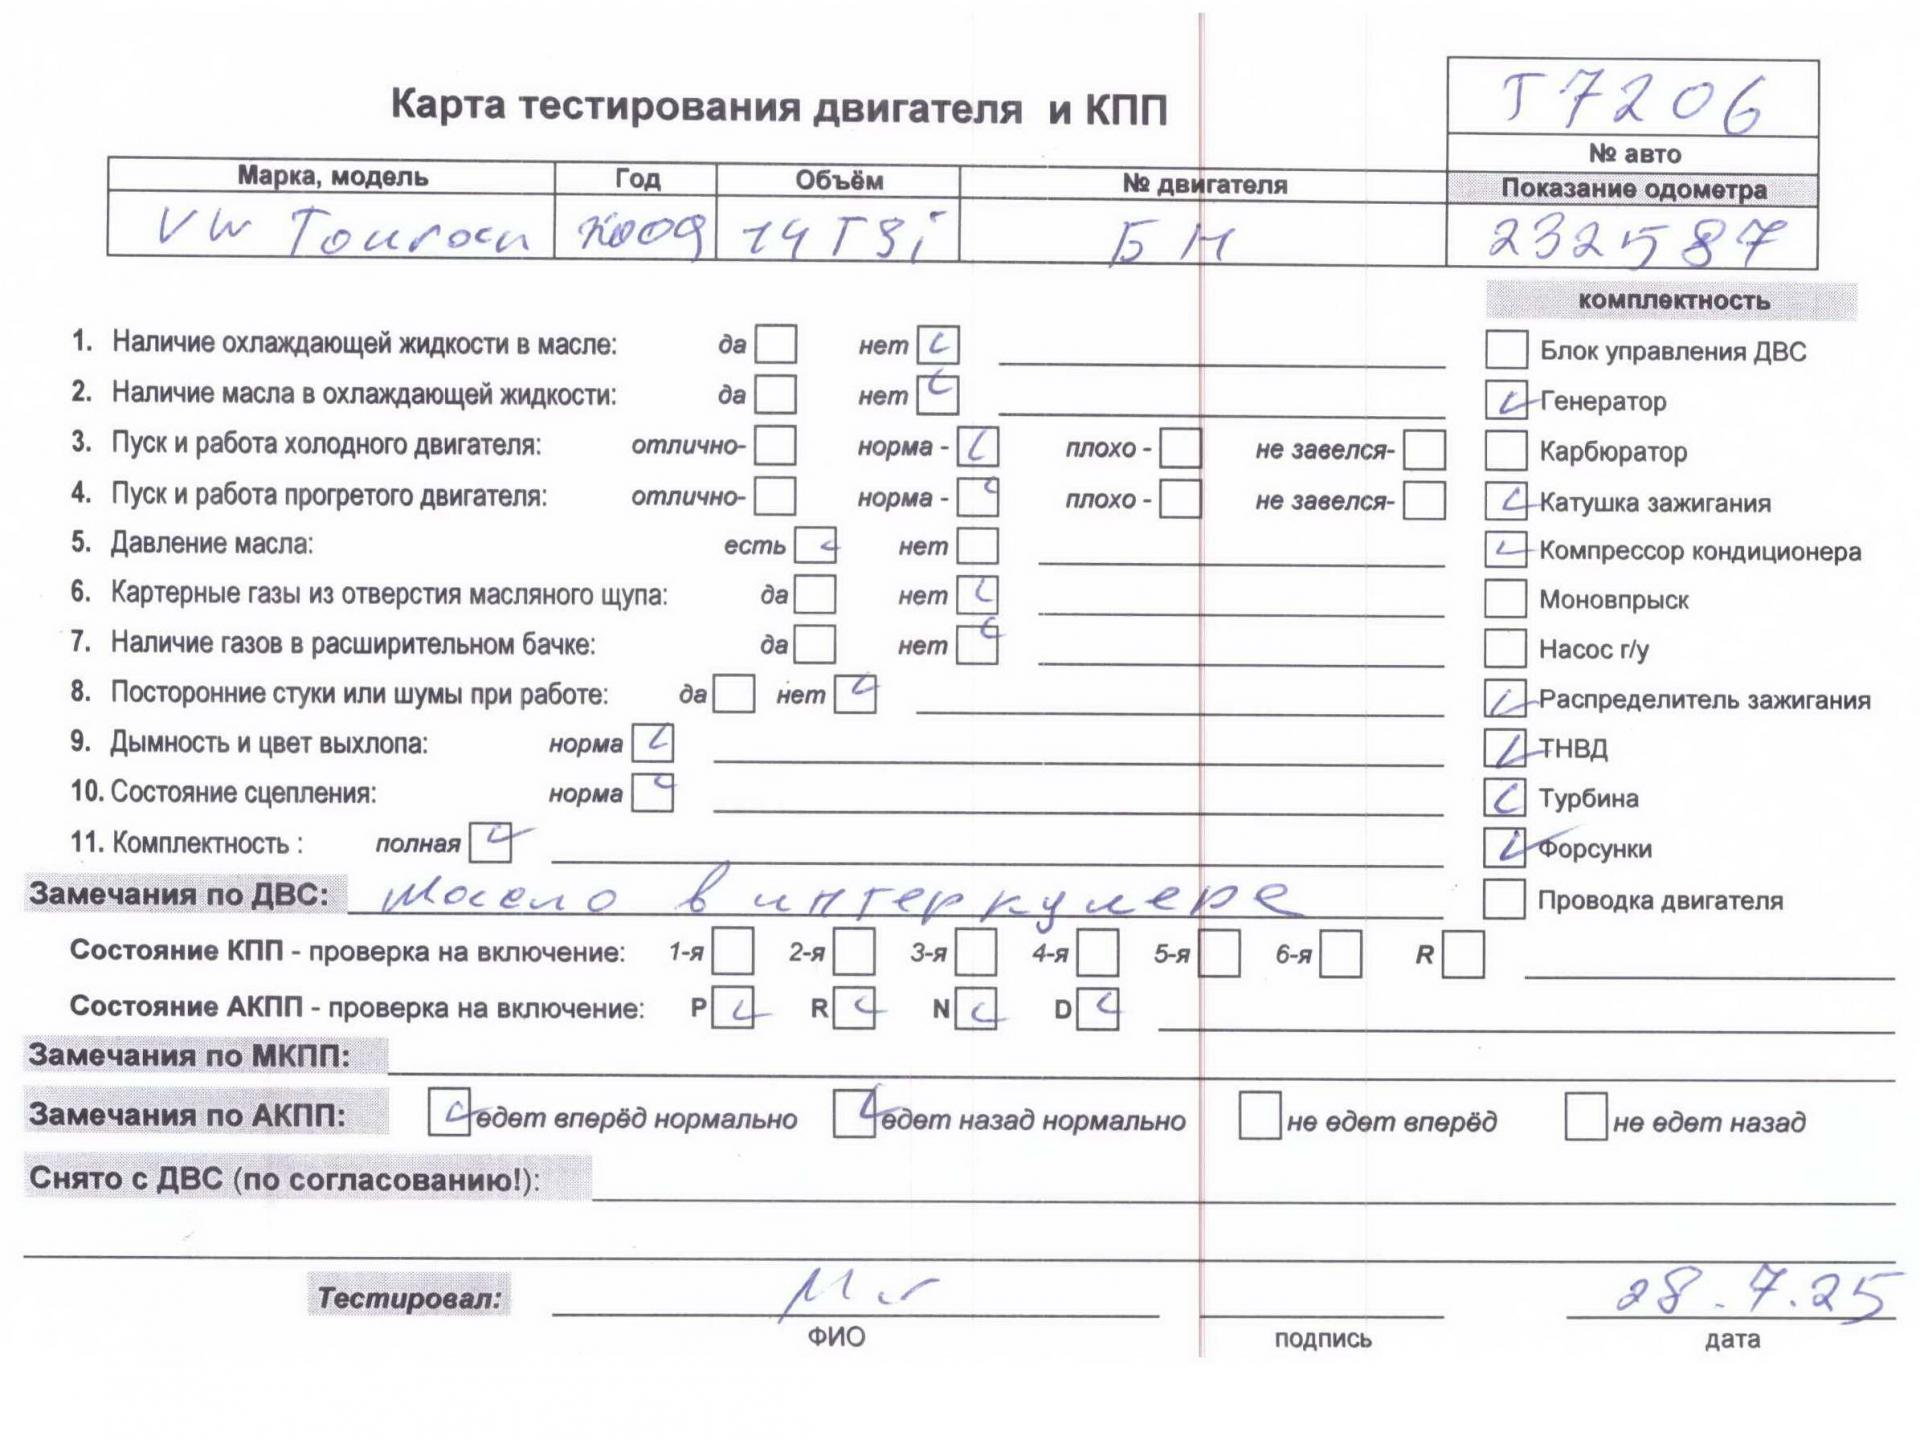 Карта тестирования двигателя и КПП
Т7206
№ авто
Марка, модель Год Объём № двигателя Показание одометра
VW Touran 2009 14 TSi БН 232587
комплектность
1. Наличие охлаждающей жидкости в масле: да нет
Блок управления ДВС
2. Наличие масла в охлаждающей жидкости: да нет
Генератор
3. Пуск и работа холодного двигателя: отлично- норма - плохо - не завелся-
Карбюратор
4. Пуск и работа прогретого двигателя: отлично- норма - плохо - не завелся-
Катушка зажигания
5. Давление масла: есть нет
Компрессор кондиционера
6. Картерные газы из отверстия масляного щупа: да нет
Моновпрыск
7. Наличие газов в расширительном бачке: да нет
Насос г/у
8. Посторонние стуки или шумы при работе: да нет
Распределитель зажигания
9. Дымность и цвет выхлопа: норма
ТНВД
10. Состояние сцепления: норма
Турбина
11. Комплектность : полная
Форсунки
Замечания по ДВС: масло в интеркулере
Проводка двигателя
Состояние КПП - проверка на включение: 1-я 2-я 3-я 4-я 5-я 6-я R
Состояние АКПП - проверка на включение: P R N D
Замечания по МКПП:
Замечания по АКПП: едет вперёд нормально едет назад нормально не едет вперёд не едет назад
Снято с ДВС (по согласованию!):
Тестировал: 28.7.25
ФИО подпись дата